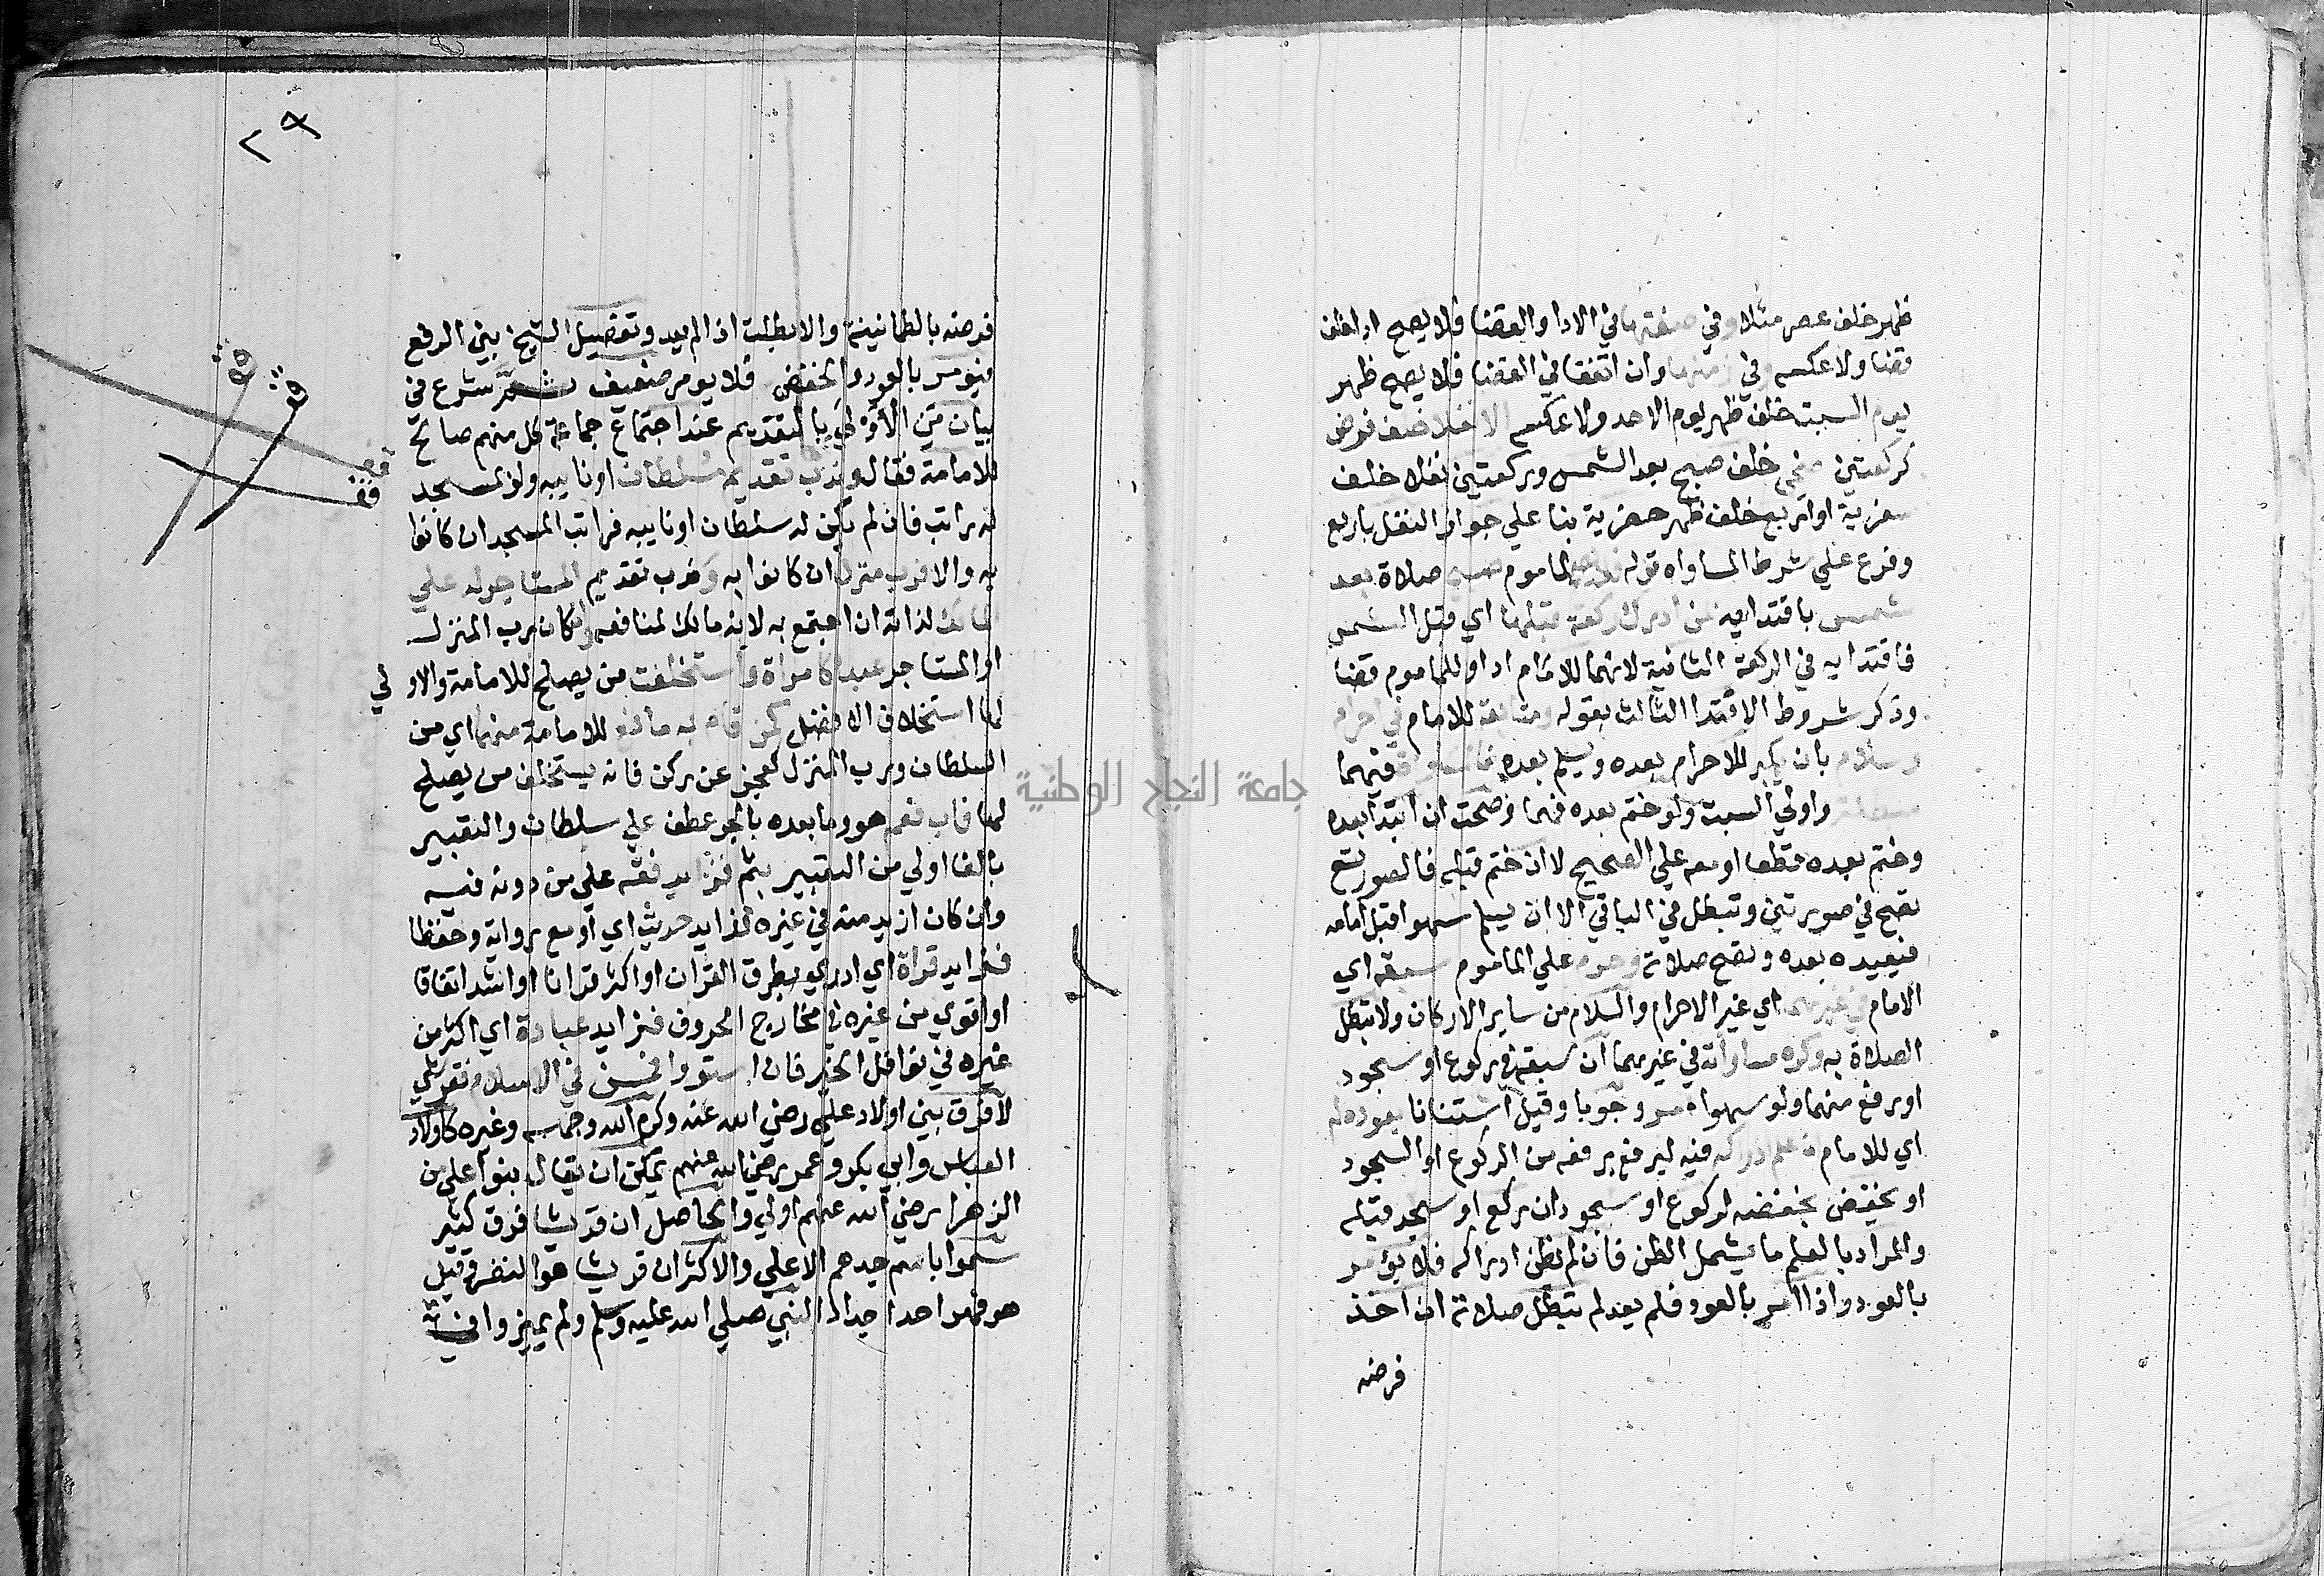 ظهر خلف عصر مثلا وفي صفتها في الادا والقضا فلا يصح ادا خلف
قضا ولا عكسه وفي زمنها وان اتفقا في القضا فلا يصح ظهر
يوم السبت خلف ظهر يوم الاحد ولا عكسه الا نفلا خلف فرض
كركعتين ضحى خلف صبح بعد الشمس وركعتين نفلا خلف
سفرية او اربع خلف ظهر حضرية بنا علي جواز النفل باربع
وفرع علي شرط المساواه قوله الماموم صلاة بعد
شمس باقتدا به من ادرك ركعة قبلها اي قبل الشمس
فاقتدا به في الركعة الثانية لانهما للامام ادا وللماموم قضا
وذكر شروط الاقتدا الثالث بقوله ومتابعة للامام في احرام
وسلام بان يكبر للاحرام بعده ويسلم بعده فيهما
واولي السبت ولو ختم بعده فهما وصحت ان ابتدا بعده
وختم بعده قطعا او معه علي الصحيح لا ان ختم قبله فالصور تسع
تصح في صورتين وتبطل في الباقي الا ان يسلم سهوا قبل امامه
فيعيده بعده وتصح صلاته وحرم علي الماموم سبقه اي
الامام في غيرهما اي غير الاحرام والسلام من ساير الاركان ولا تبطل
الصلاة به وكره مساواته في غيرهما ان سبقه في ركوع او سجود
او رفع منهما ولو سهوا امر وجوبا وقيل استنانا بعوده له
اي للامام ان علم ادراكه فيه ليرفع برفعه من الركوع او السجود
او يخفض بخفضه لركوع او سجود ان ركع او سجد قبله
والمراد بالعلم ما يشمل الظن فان لم يظن ادراكه فلا يؤمر
بالعود واذا امر بالعود فلم يعد لم تبطل صلاته ان اخذ
فرضه
٢٩
فرضه بالطمانينة والا بطلت اذا لم يعد وتفصيل الشيخ بين الرفع
فيومر بالعود والخفض فلا يومر ضعيف ثم شرع في
بيان من الاولي بالتقديم عند اجتماع جماعة كل منهم صالح
للامامة فقال وندب تقديم سلطان او نايبه ولو لمسجد
له راتب فان لم يكن له سلطان او نايبه فراتب المسجد ان كانوا
به والا فرب منزل ان كانوا به وندب تقديم المستاجر له علي
المالك لذاته ان اجتمع به لانه مالك لمنافعه وان كان رب المنزل
او المستاجر عبدا كامراة واستخلفت من يصلح للامامة والاولي
لها استخلاف الافضل كمن قام به مانع للامامة منهما اي من
السلطان ورب المنزل كعجز عن ركن فانه يستخلف من يصلح
لها فاب فعم هو وما بعده بالجر عطف علي سلطان والتعبير
بالفا اولي من التعبير بثم فزايد فقه علي من دونه فيه
وان كان ازيد منه في غيره فزايد حديث اي اوسع رواية وحفظا
فزايد قراة اي ادري بطرق القران او اكثر قرانا او اشد اتقانا
او اقوي من غيره في مخارج الحروف فزايد عبادة اي اكثر من
غيره في نوافل الخير فان استووا فمسن في الاسلام فقرشي
لا فرق بين اولاد علي رضي الله عنه وكرم الله وجهه وغيره كاولاد
العباس وابي بكر وعمر رضي الله عنهم يمكن ان يقال بنوا علي من
الزهرا رضي الله عنهم اولي والحاصل ان قريشا فرق كثير
سموا باسم جدهم الاعلي والاكثر ان قريشا هو النضر وقيل
هو فهر احد اجداد النبي صلي الله عليه وسلم ولم يميزوا في
جامعة النجاح الوطنية